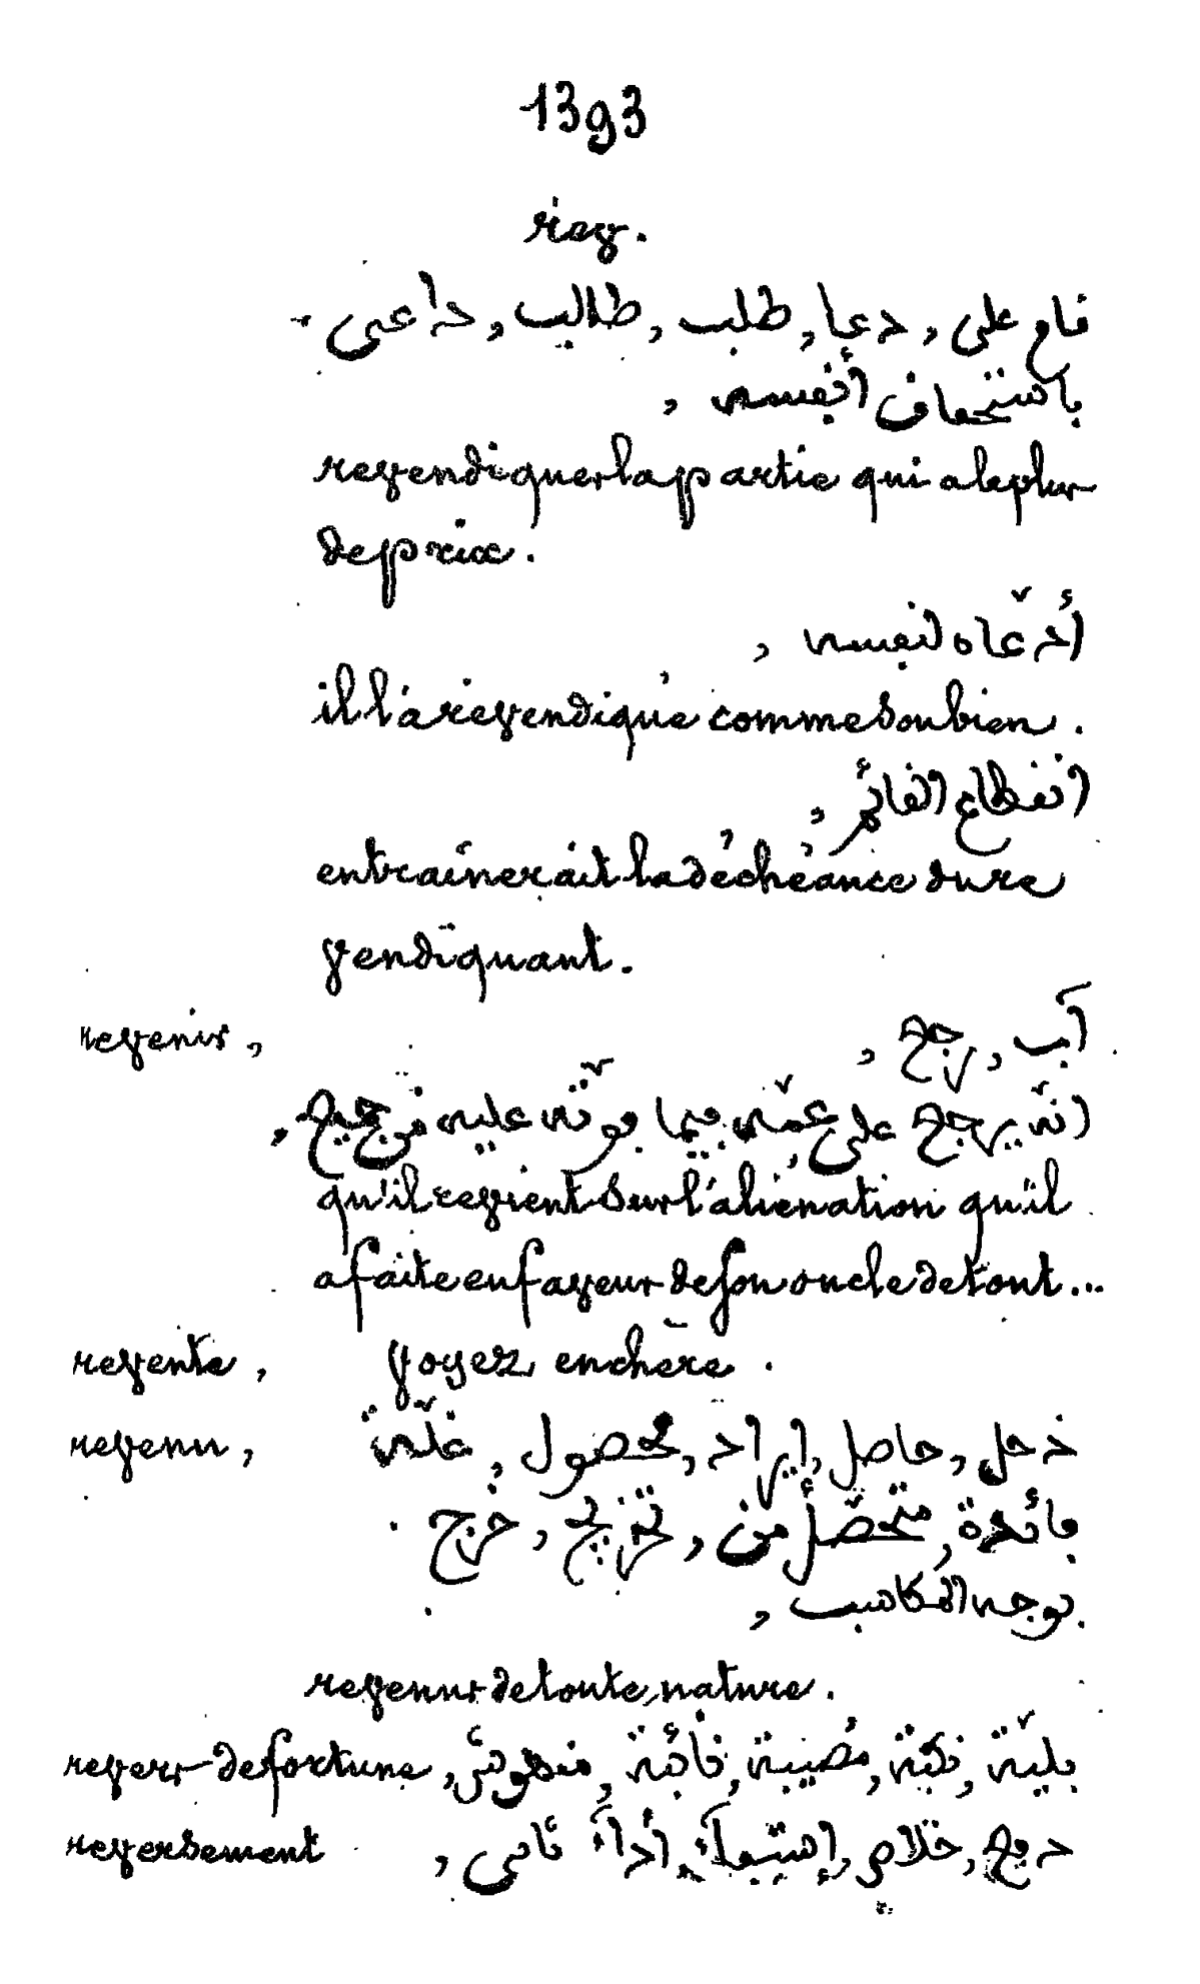 1393
rev.
قام على, دعا, طلب, طالب, داعى -
باستحقاق أنفسه,
revendiquer la partie qui a le plus
de prix.
أدّعاه لنفسه,
il l'a revendiqué comme son bien.
انقطاع القائم,
entraînerait la déchéance du re
vendiquant.
revenir, آب, رجع,
انّه يرجع على عمّه فيما فوّته عليه من جميع,
qu'il revient sur l'aliénation qu'il
a faite en faveur de son oncle de tout...
revente, voyez enchère.
revenu, دخل, حاصل, إيراد, محصول, غلّة
فائدة, متحصّل من, خرج.
بوجه المكاسب,
revenus de toute nature.
revers de fortune, بليّة, نكبة, مصيبة, نائبة,
reversement دفع, خلاص, إستيفاء, أداء ثانى,